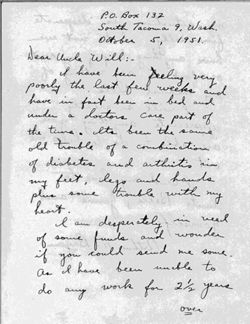 P.O. Box 132
South Tacoma 9, Wash.
October 5, 1951.
Dear Uncle Will:-
I have been feeling very
poorly the last few weeks and
have in fact been in bed and
under a doctors care part of
the time. Its been the same
old trouble of a combination
of diabetes and arthritis in
my feet, legs and hands
plus some trouble with my
heart.
I am desperately in need
of some funds and wonder
if you could send me some.
As I have been unable to
do any work for 2½ years
over